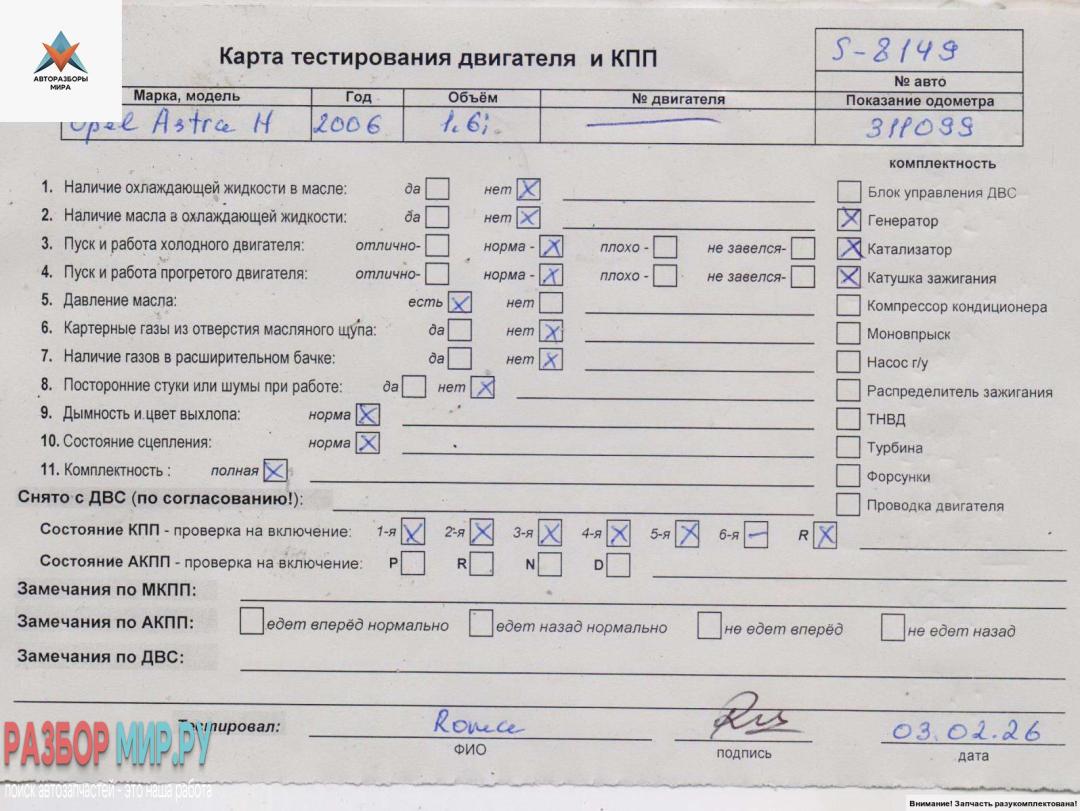 АВТОРАЗБОРЫ
МИРА
Карта тестирования двигателя и КПП
S-8149
№ авто
Марка, модель Год Объём № двигателя Показание одометра
Opel Astra H 2006 1.6i 311099
комплектность
1. Наличие охлаждающей жидкости в масле: да нет X
Блок управления ДВС
2. Наличие масла в охлаждающей жидкости: да нет X
X Генератор
3. Пуск и работа холодного двигателя: отлично- норма - X плохо - не завелся-
X Катализатор
4. Пуск и работа прогретого двигателя: отлично- норма - X плохо - не завелся-
X Катушка зажигания
5. Давление масла: есть X нет
Компрессор кондиционера
6. Картерные газы из отверстия масляного щупа: да нет X
Моновпрыск
7. Наличие газов в расширительном бачке: да нет X
Насос г/у
8. Посторонние стуки или шумы при работе: да нет X
Распределитель зажигания
9. Дымность и цвет выхлопа: норма X
ТНВД
10. Состояние сцепления: норма X
Турбина
11. Комплектность : полная X
Форсунки
Снято с ДВС (по согласованию!):
Проводка двигателя
Состояние КПП - проверка на включение: 1-я X 2-я X 3-я X 4-я X 5-я X 6-я — R X
Состояние АКПП - проверка на включение: P R N D
Замечания по МКПП:
Замечания по АКПП: едет вперёд нормально едет назад нормально не едет вперёд не едет назад
Замечания по ДВС:
Тестировал: Рома 03.02.26
ФИО подпись дата
РАЗБОР МИР.РУ
поиск автозапчастей - это наша работа
Внимание! Запчасть разукомплектована!